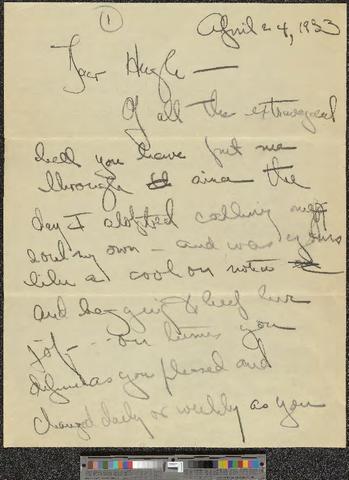 ①
April 24, 1933
Dear Hugh —
Of all the extravagant
hell you have put me
through since the
day I stopped calling my
soul my own — and was yours
like a cook on notice
and begging to keep her
job — on terms you
defined as you pleased and
changed daily or weekly as you